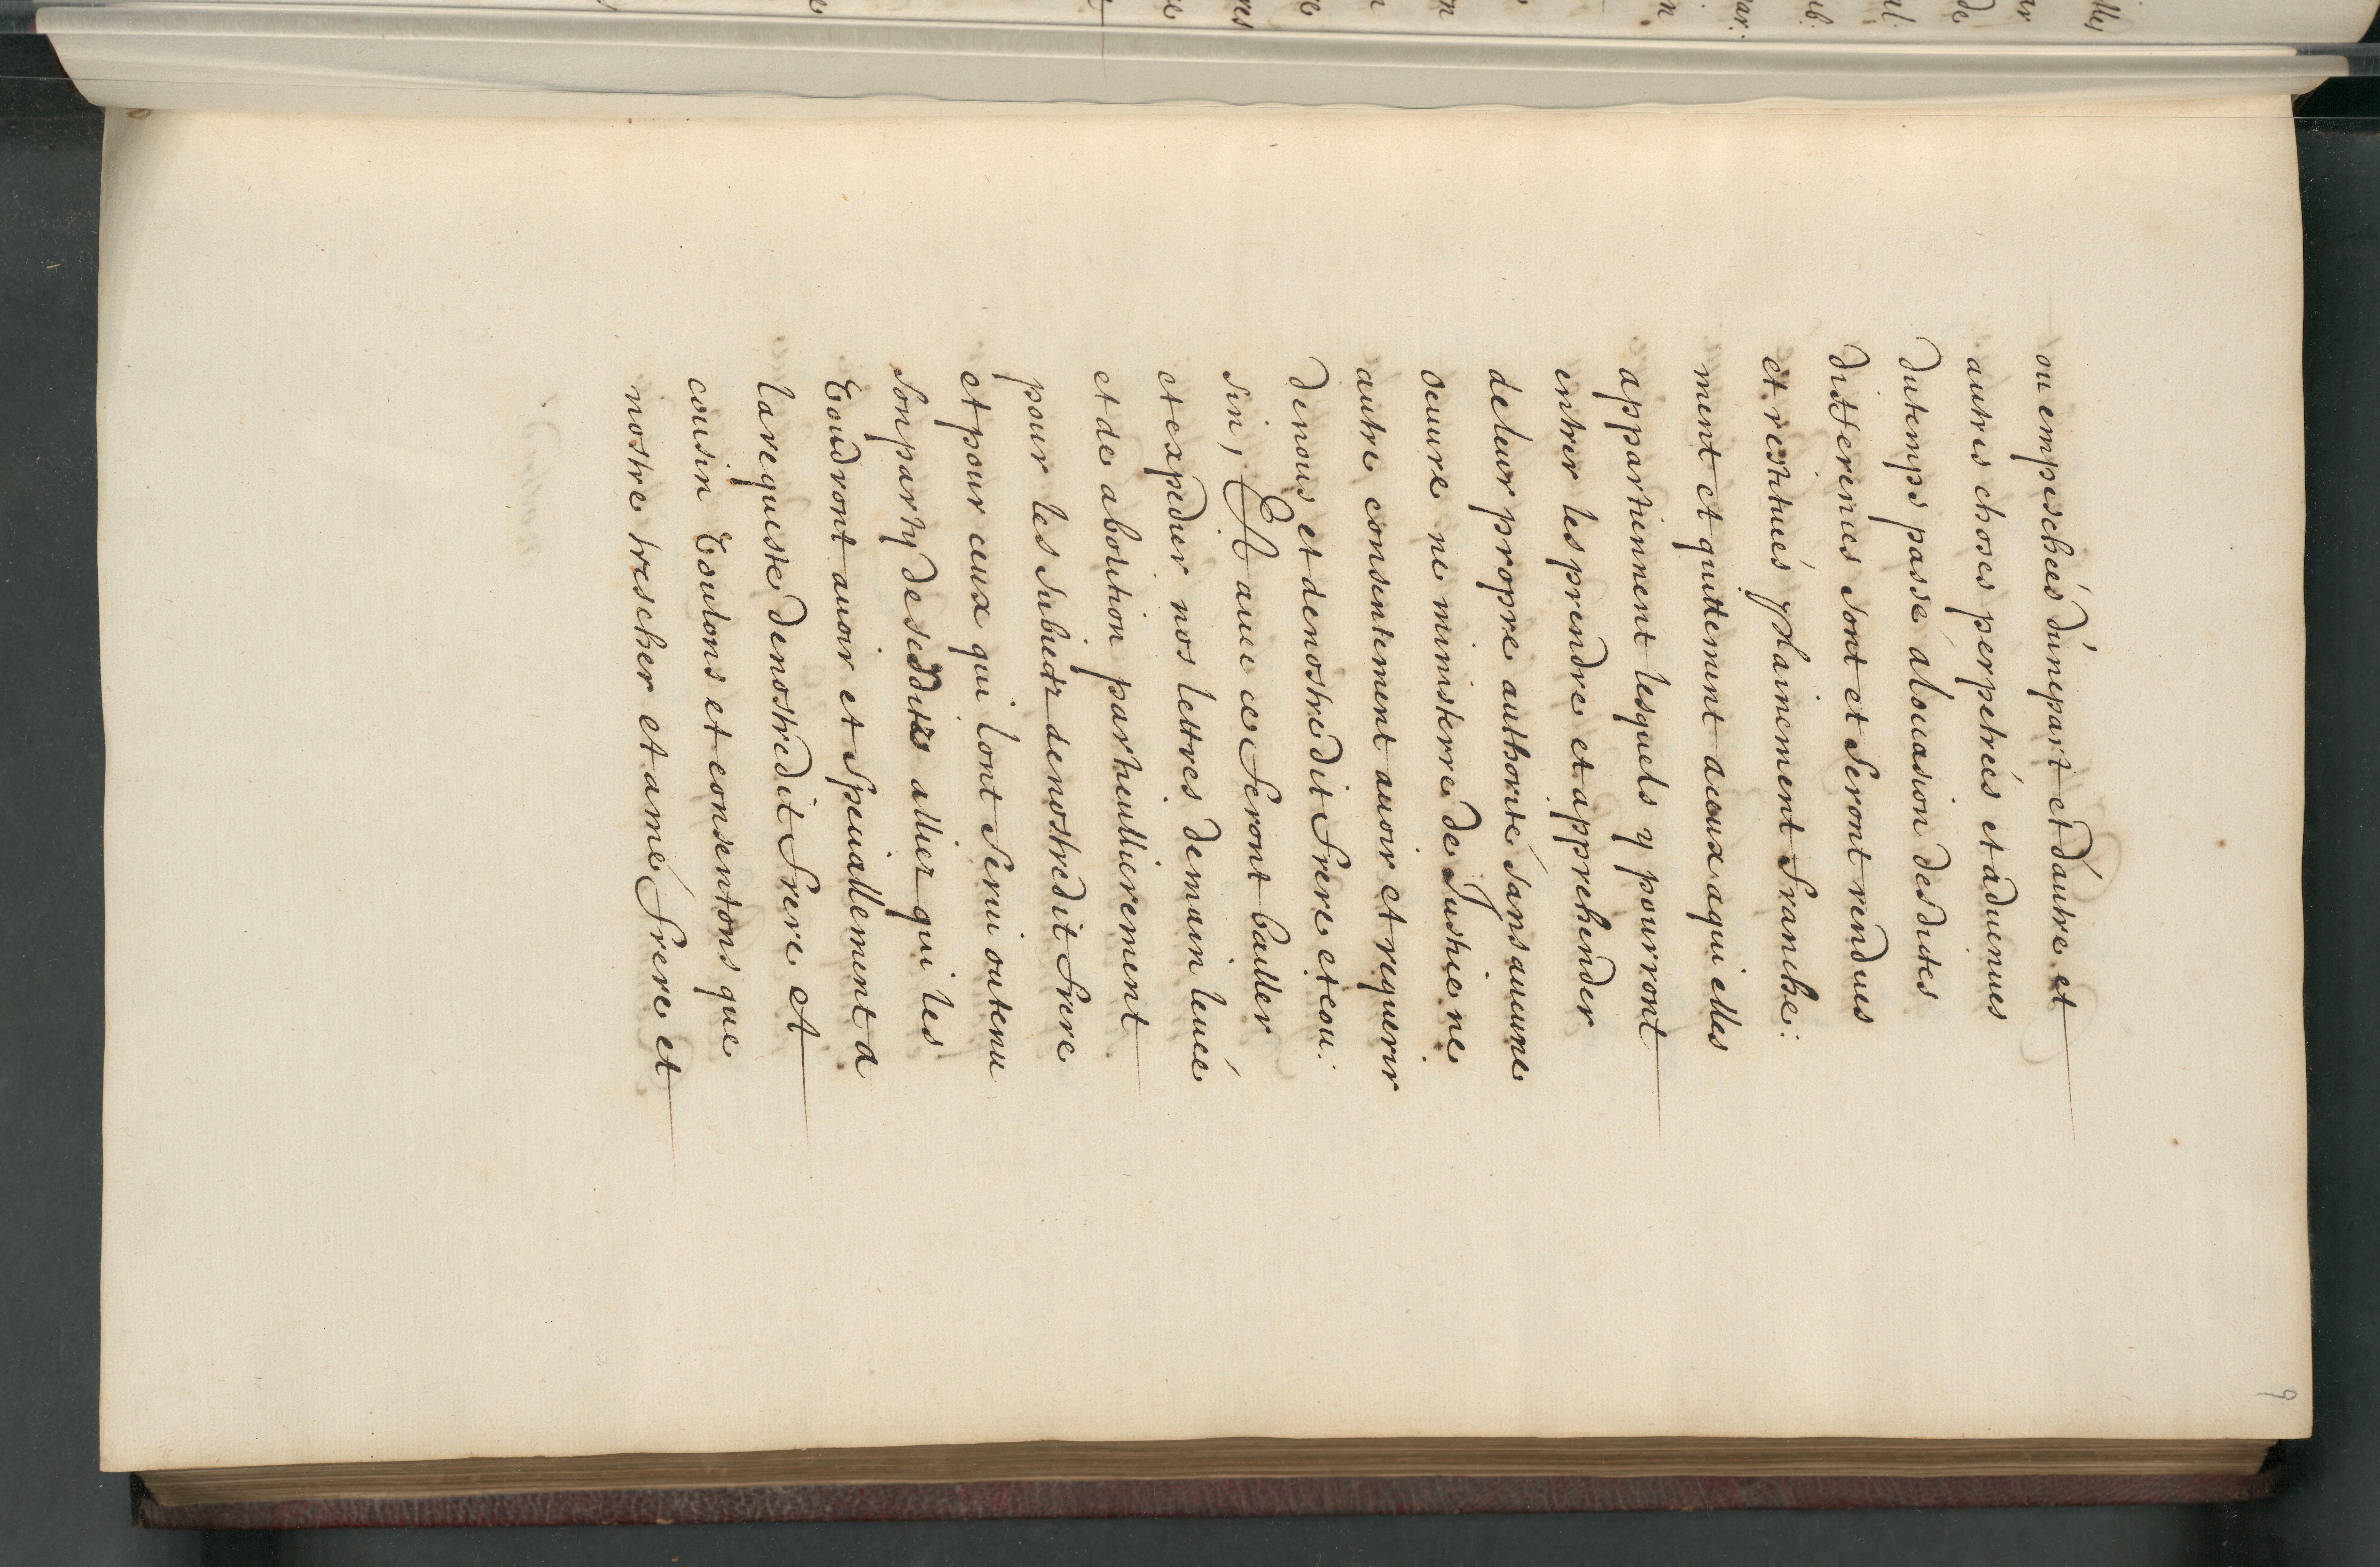 ou empeschéés dúnepart et dautre et
autres choses perpetréés et aduenues
dutemps passé alocasion desdites
differenies sont et seront rendues
et restituéés plainement franche:
ment et quittement aceux aqui elles
appartiennent lesquels y pourront
entrer les prendre et apprehender
deleur propre authorité sans aucune
oeuure ne ministerre de Justice ne
autre consentement auoir et requerir
denous et denostredit frere et cou:
sin, Et auec ce seront bailler
et expedier nos lettres demain leuéé
et de abolition particullierement
pour les subietz denostredit frere
et pour ceux qui lont serui outenu
sonparty desesdites alliez qui les
voudront auoir et speciallement a
larequeste denostredit frere et
cousin voulons et consentons que
nostre trescher et amé frere et
9